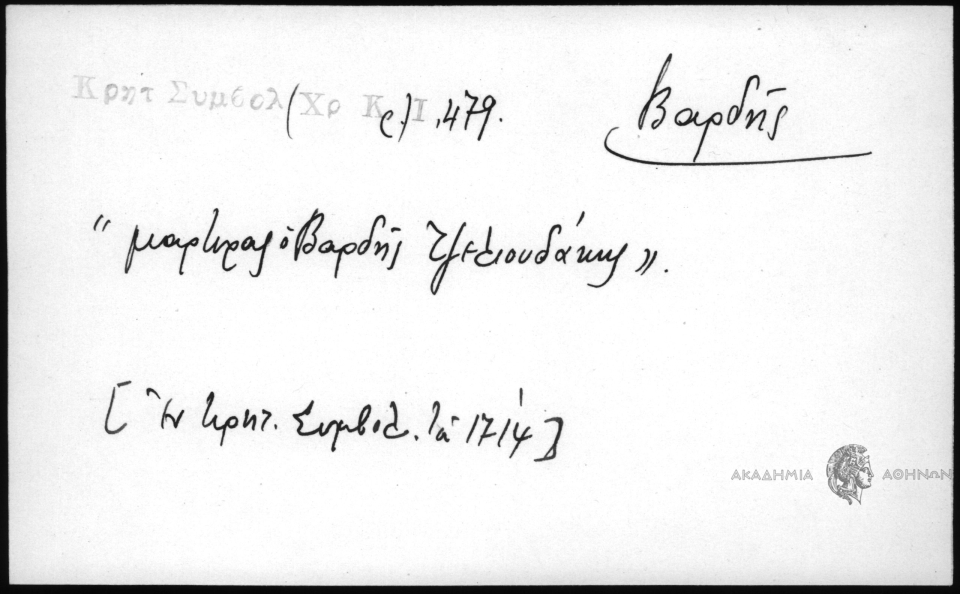 Κρητ Συμβολ (Χρ Κρ) Ι, 479.
Βαρδῆς
“ μάρτυρας ὁ Βαρδῆς Τζελιουδάκης ».
[ Ἐν Κρητ. Συμβολ. τοῦ 1714 ]
ΑΚΑΔΗΜΙΑ ΑΘΗΝΩΝ